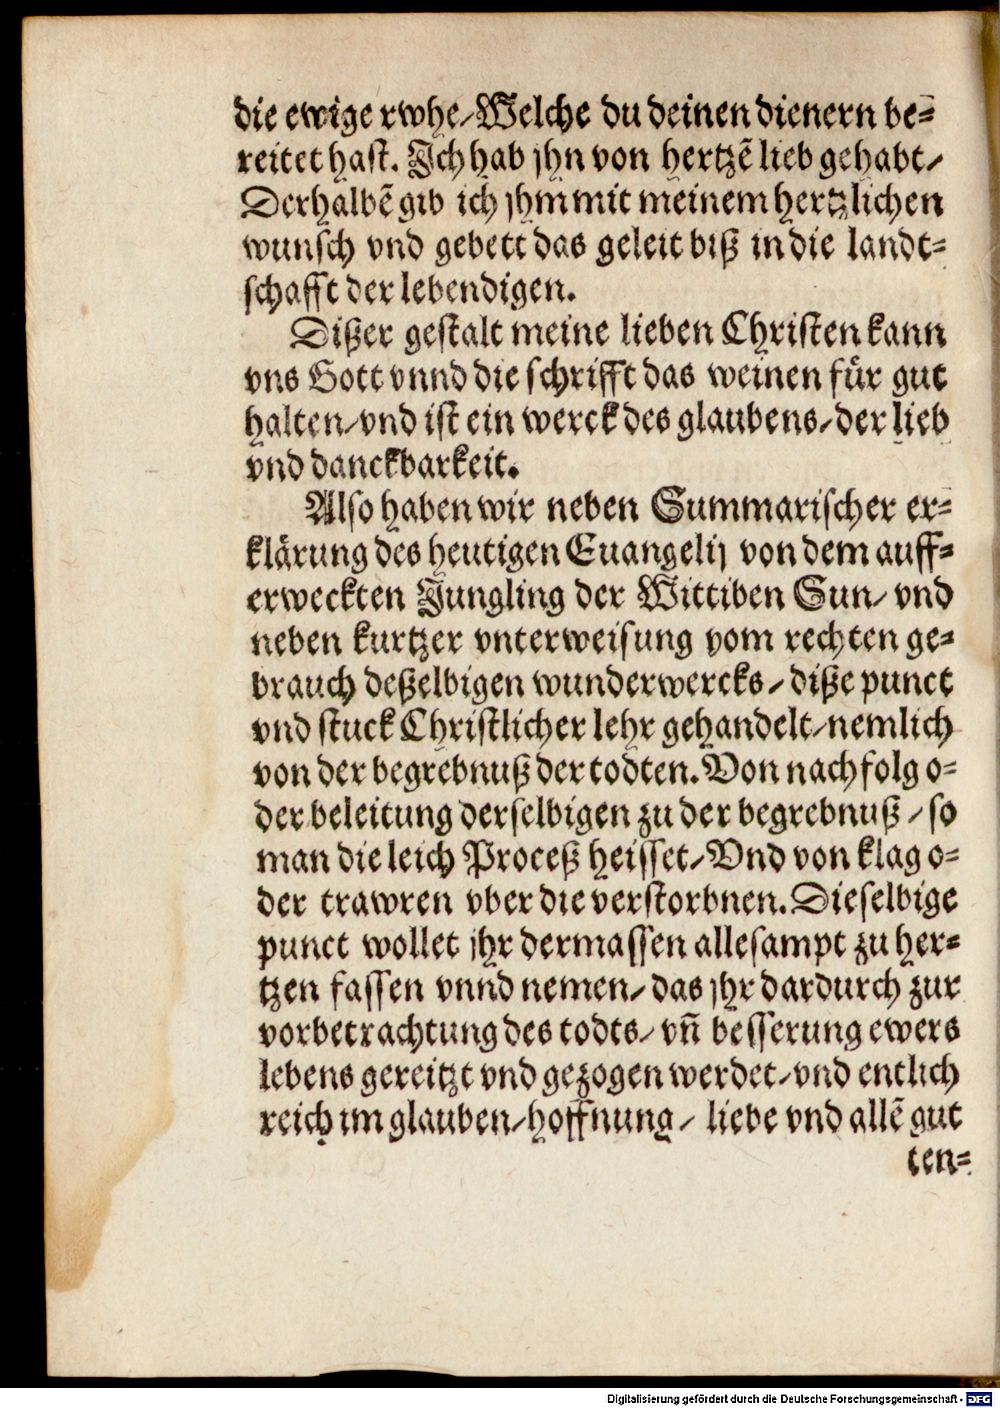 die ewige rwhe/Welche du deinen dienern be⸗
reitet hast. Ich hab jhn von hertzē lieb gehabt/
Derhalbē gib ich jhm mit meinem hertzlichen
wunsch vnd gebett das geleit biß in die landt⸗
schafft der lebendigen.
Dißer gestalt meine lieben Christen kann
vns Gott vnnd die schrifft das weinen für gut
halten/vnd ist ein werck des glaubens/der lieb
vnd danckbarkeit.
Also haben wir neben Summarischer er⸗
klärung des heutigen Euangelij von dem auff⸗
erweckten Jungling der Wittiben Sun/ vnd
neben kurtzer vnterweisung vom rechten ge⸗
brauch deßelbigen wunderwercks/ diße punct
vnd stuck Christlicher lehr gehandelt/nemlich
von der begrebnuß der todten. Von nachfolg o⸗
der beleitung derselbigen zu der begrebnuß/ so
man die leich Proceß heisset/Vnd von klag o⸗
der trawren vber die verstorbnen. Dieselbige
punct wollet jhr dermassen allesampt zu her⸗
tzen fassen vnnd nemen/das jhr dardurch zur
vorbetrachtung des todts/ vñ besserung ewers
lebens gereitzt vnd gezogen werdet/vnd entlich
reich im glauben/hoffnung/ liebe vnd allē gut
ten⸗
Digitalisierung gefördert durch die Deutsche Forschungsgemeinschaft - DFG